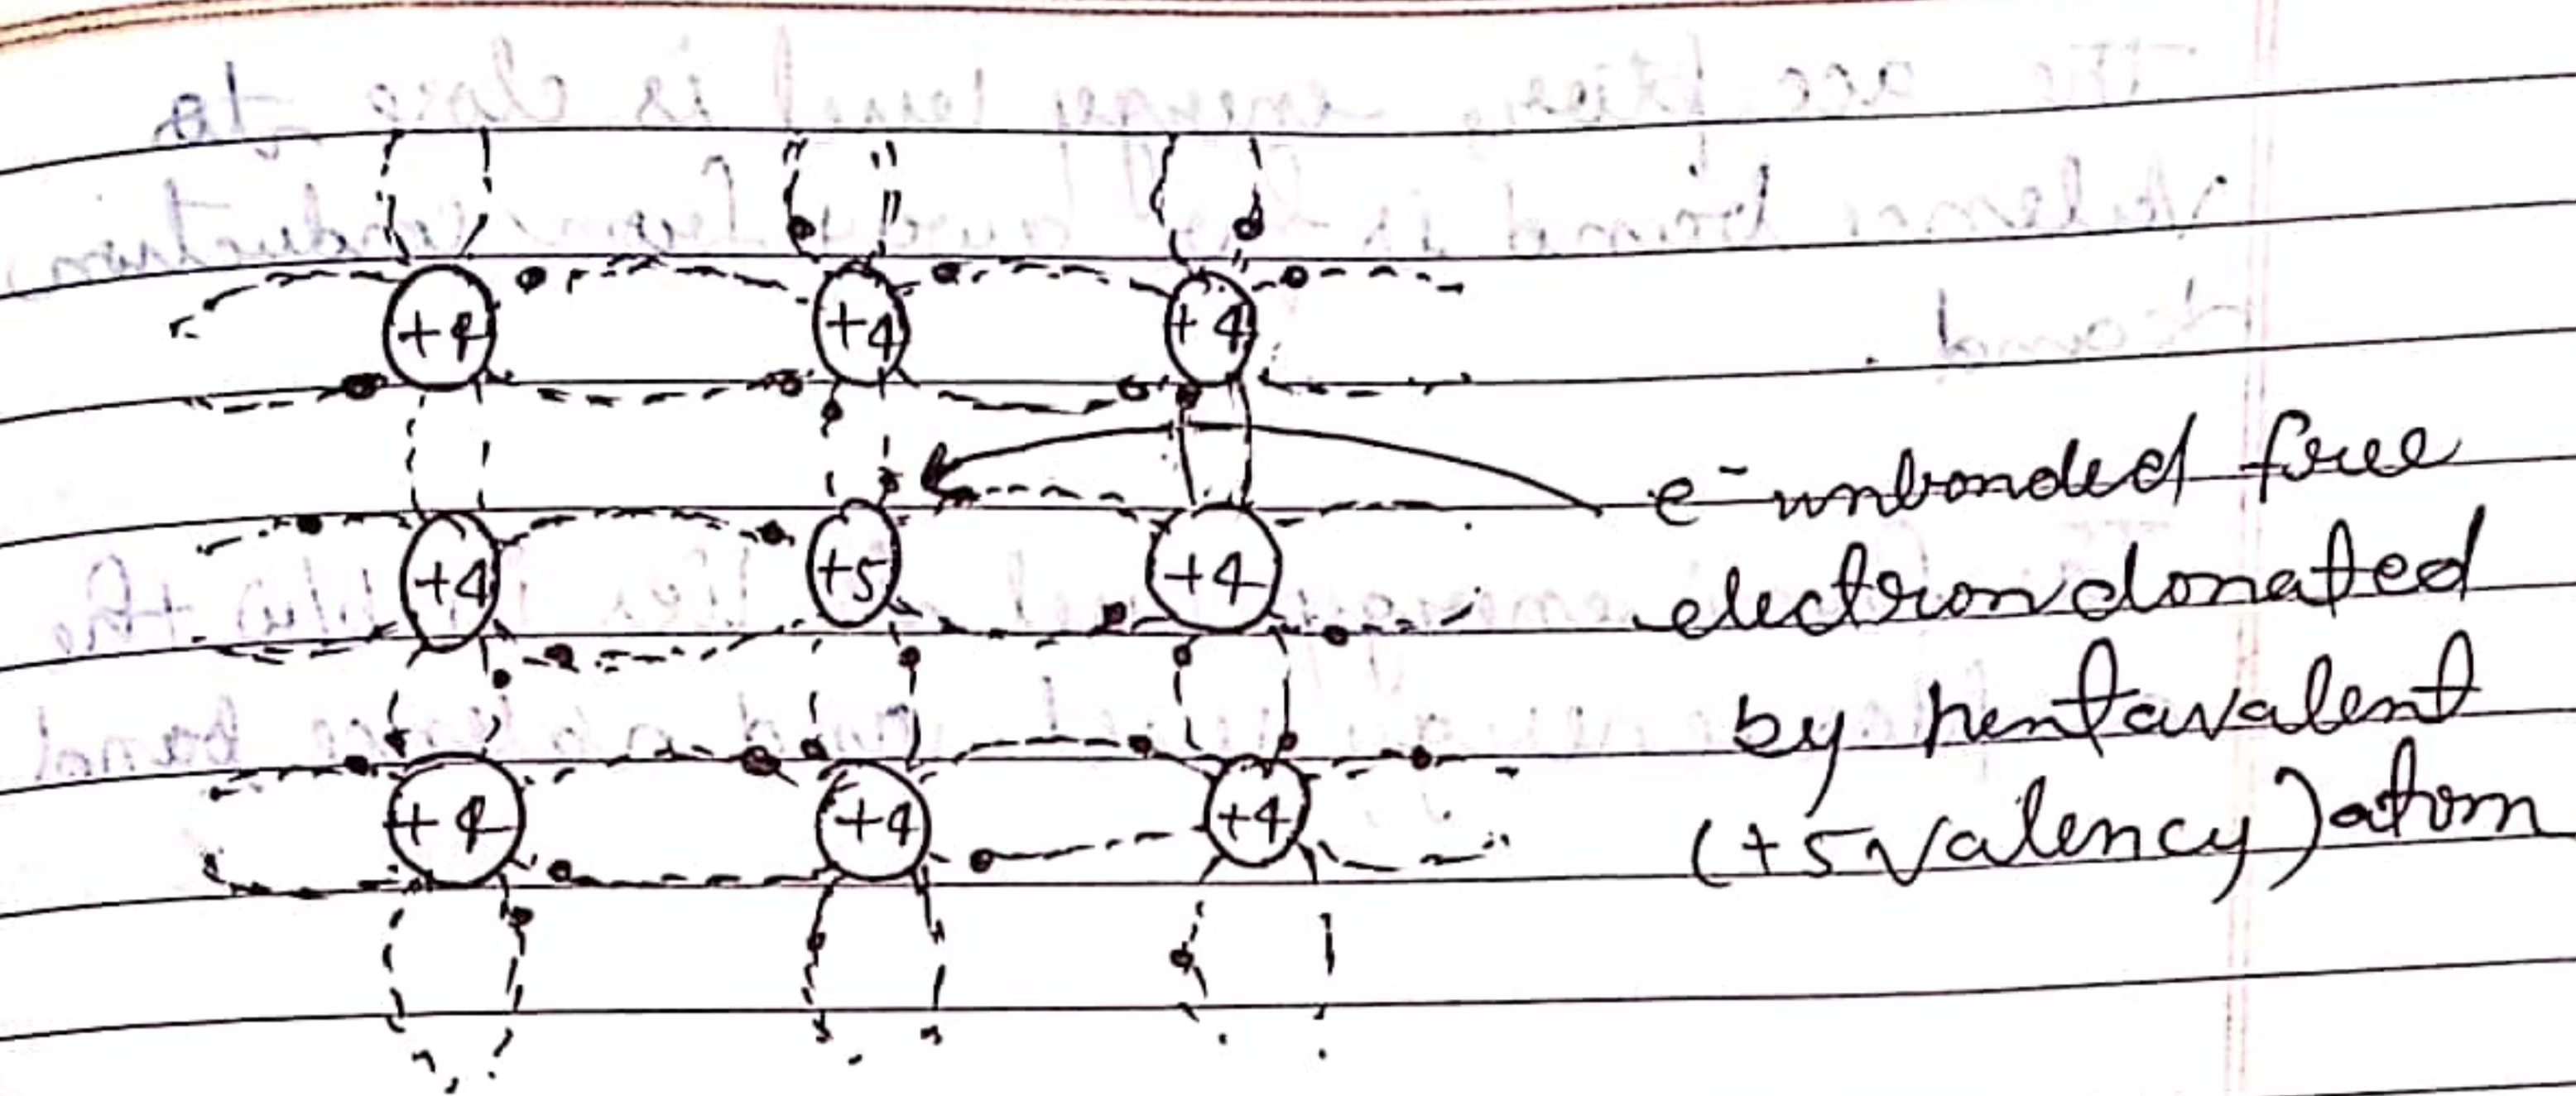 +4 +4 +4
e⁻ unbonded free
+4 +5 +4
electron donated
by pentavalent
+4 +4 +4
(+5 valency) atom